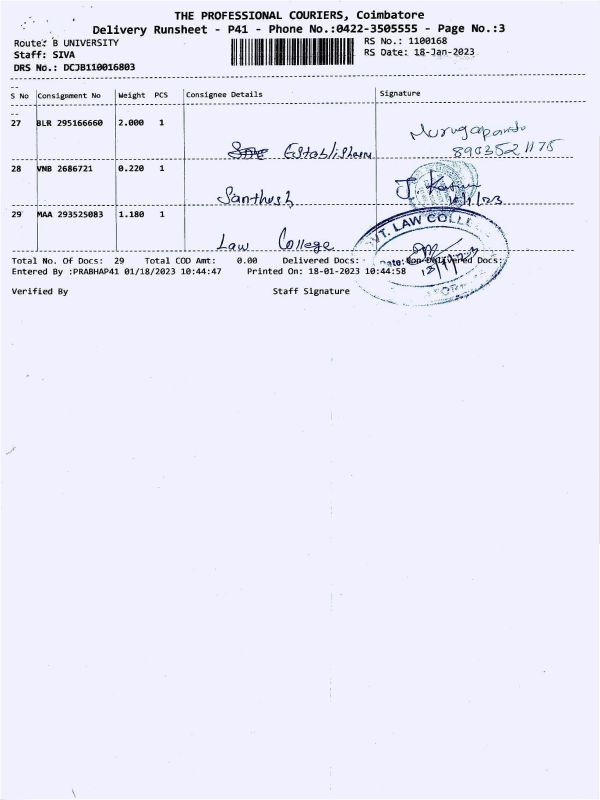 THE PROFESSIONAL COURIERS, Coimbatore
Delivery Runsheet - P41 - Phone No.:0422-3505555 - Page No.:3
Route: B UNIVERSITY
RS No.: 1100168
Staff: SIVA
RS Date: 18-Jan-2023
DRS No.: DCJB110016803
S No Consignment No Weight PCS Consignee Details Signature
27 BLR 295166660 2.000 1
Murugapandi
Establisham 8903521175
28 VNB 2686721 0.220 1
Santhosh
29 MAA 293525083 1.180 1
GVT. LAW COLLE
Law College
Total No. Of Docs: 29 Total COD Amt: 0.00 Delivered Docs: Non Delivered Docs:
Date:
Entered By :PRABHAP41 01/18/2023 10:44:47 Printed On: 18-01-2023 10:44:58
Verified By Staff Signature